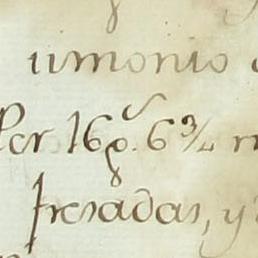 umonio
Per 16 8. 6 3/4
fresadas, y